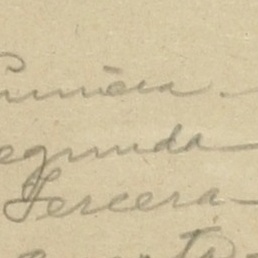 Primera -
Segunda -
Tercera -